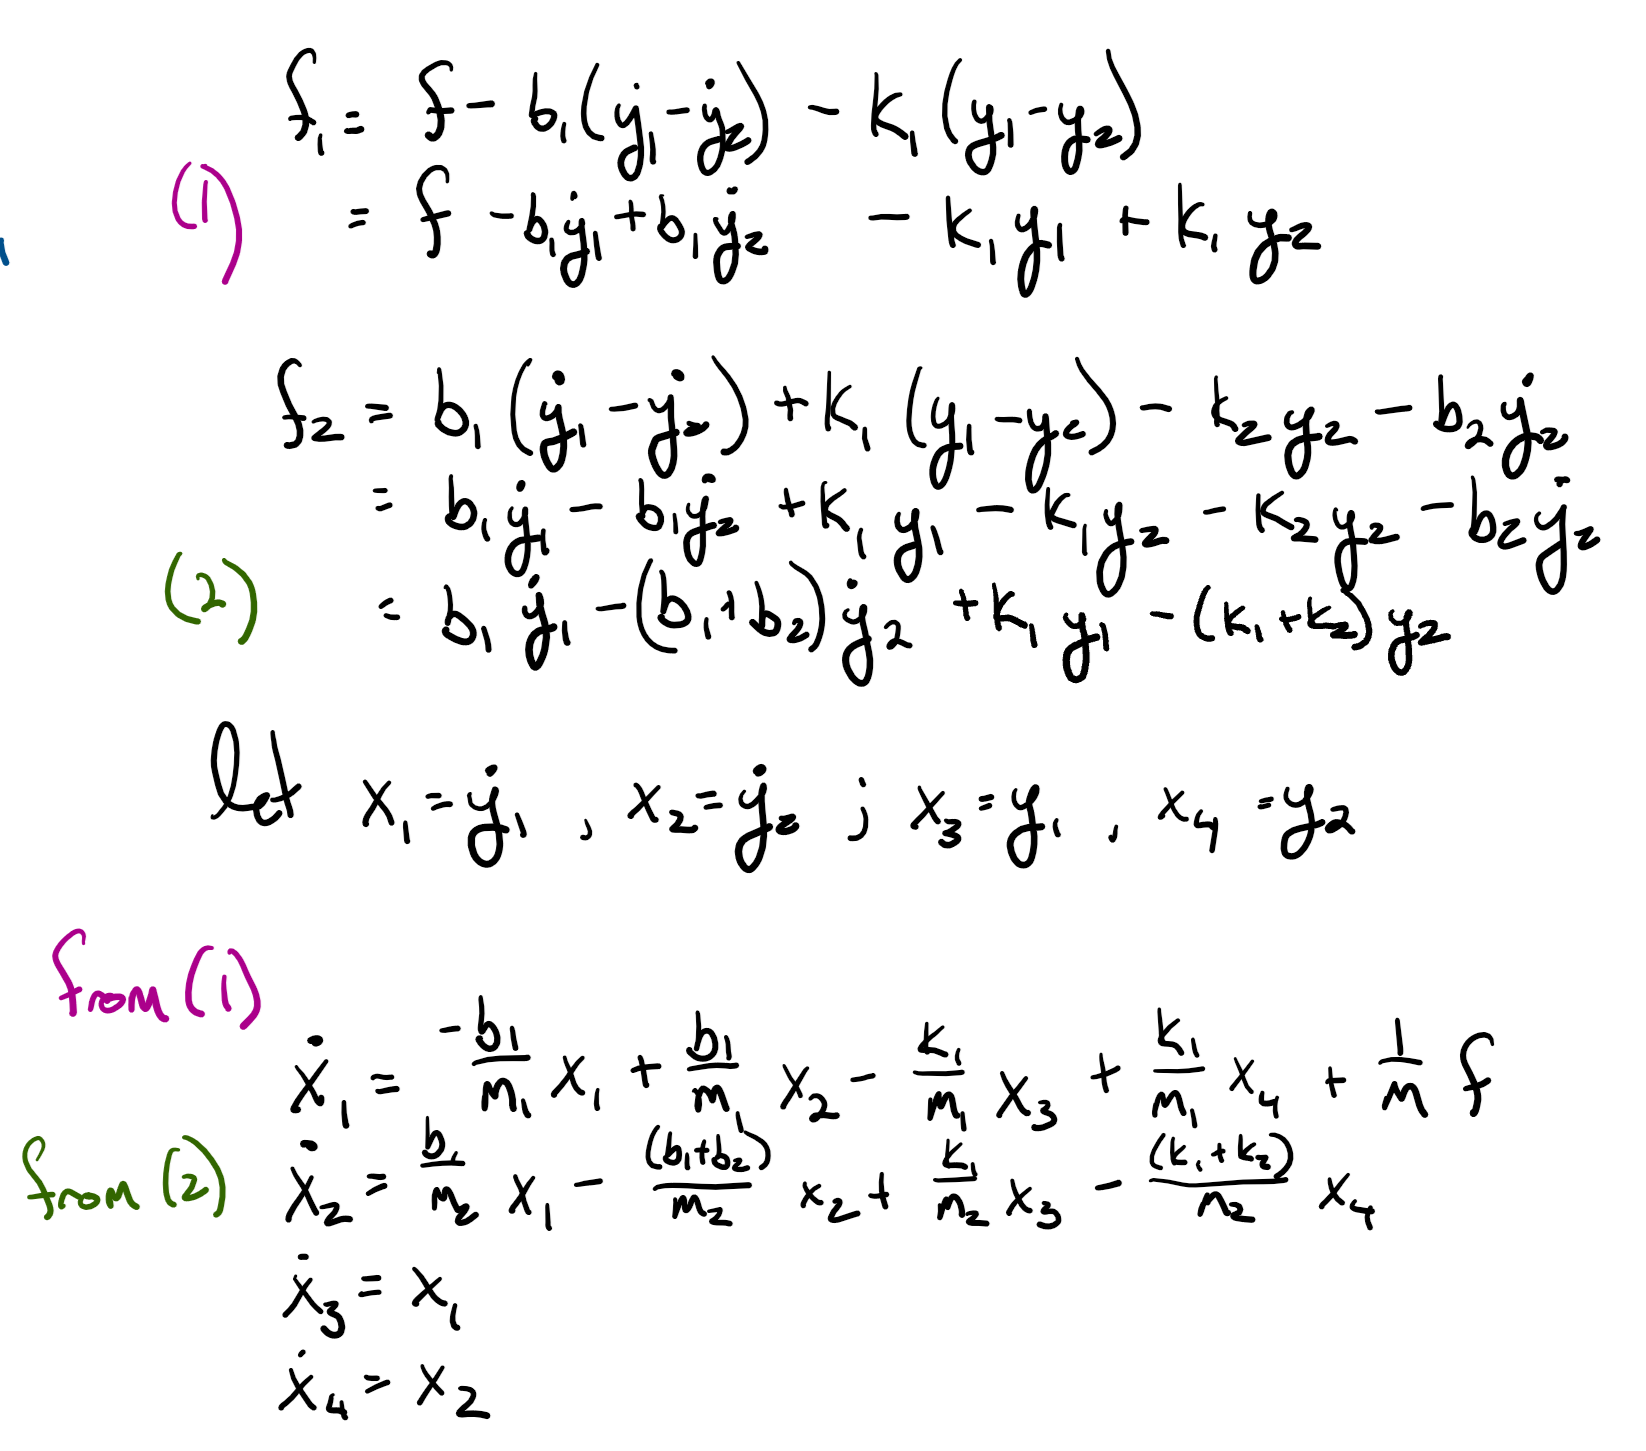 f₁ = f − b₁(ẏ₁ − ẏ₂) − k₁(y₁ − y₂)
(1) = f − b₁ẏ₁ + b₁ẏ₂ − k₁y₁ + k₁y₂
f₂ = b₁(ẏ₁ − ẏ₂) + k₁(y₁ − y₂) − k₂y₂ − b₂ẏ₂
= b₁ẏ₁ − b₁ẏ₂ + k₁y₁ − k₁y₂ − k₂y₂ − b₂ẏ₂
(2) = b₁ẏ₁ − (b₁+b₂)ẏ₂ + k₁y₁ − (k₁+k₂)y₂
let x₁ = ẏ₁ , x₂ = ẏ₂ ; x₃ = y₁ , x₄ = y₂
from (1)
ẋ₁ = −b₁/m₁ x₁ + b₁/m₁ x₂ − k₁/m₁ x₃ + k₁/m₁ x₄ + 1/m f
from (2) ẋ₂ = b₁/m₂ x₁ − (b₁+b₂)/m₂ x₂ + k₁/m₂ x₃ − (k₁+k₂)/m₂ x₄
ẋ₃ = x₁
ẋ₄ = x₂